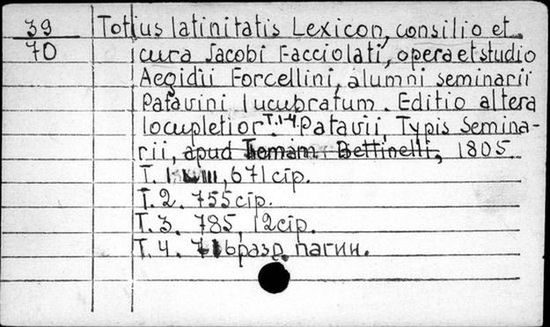 39 Totius latinitatis Lexicon, consilio et
70 cura Jacobi Facciolati, opera et studio
Aegidii Forcellini, alumni seminarii
Patavini lucubratum. Editio altera
locupletior. T.1-4 Patavii, Typis Semina-
rii, apud Tomam Bettinelli, 1805
T. 1. III, 671 стр.
T. 2. 755 стр.
T. 3. 785, 12 стр.
T. 4. разр. пагин.